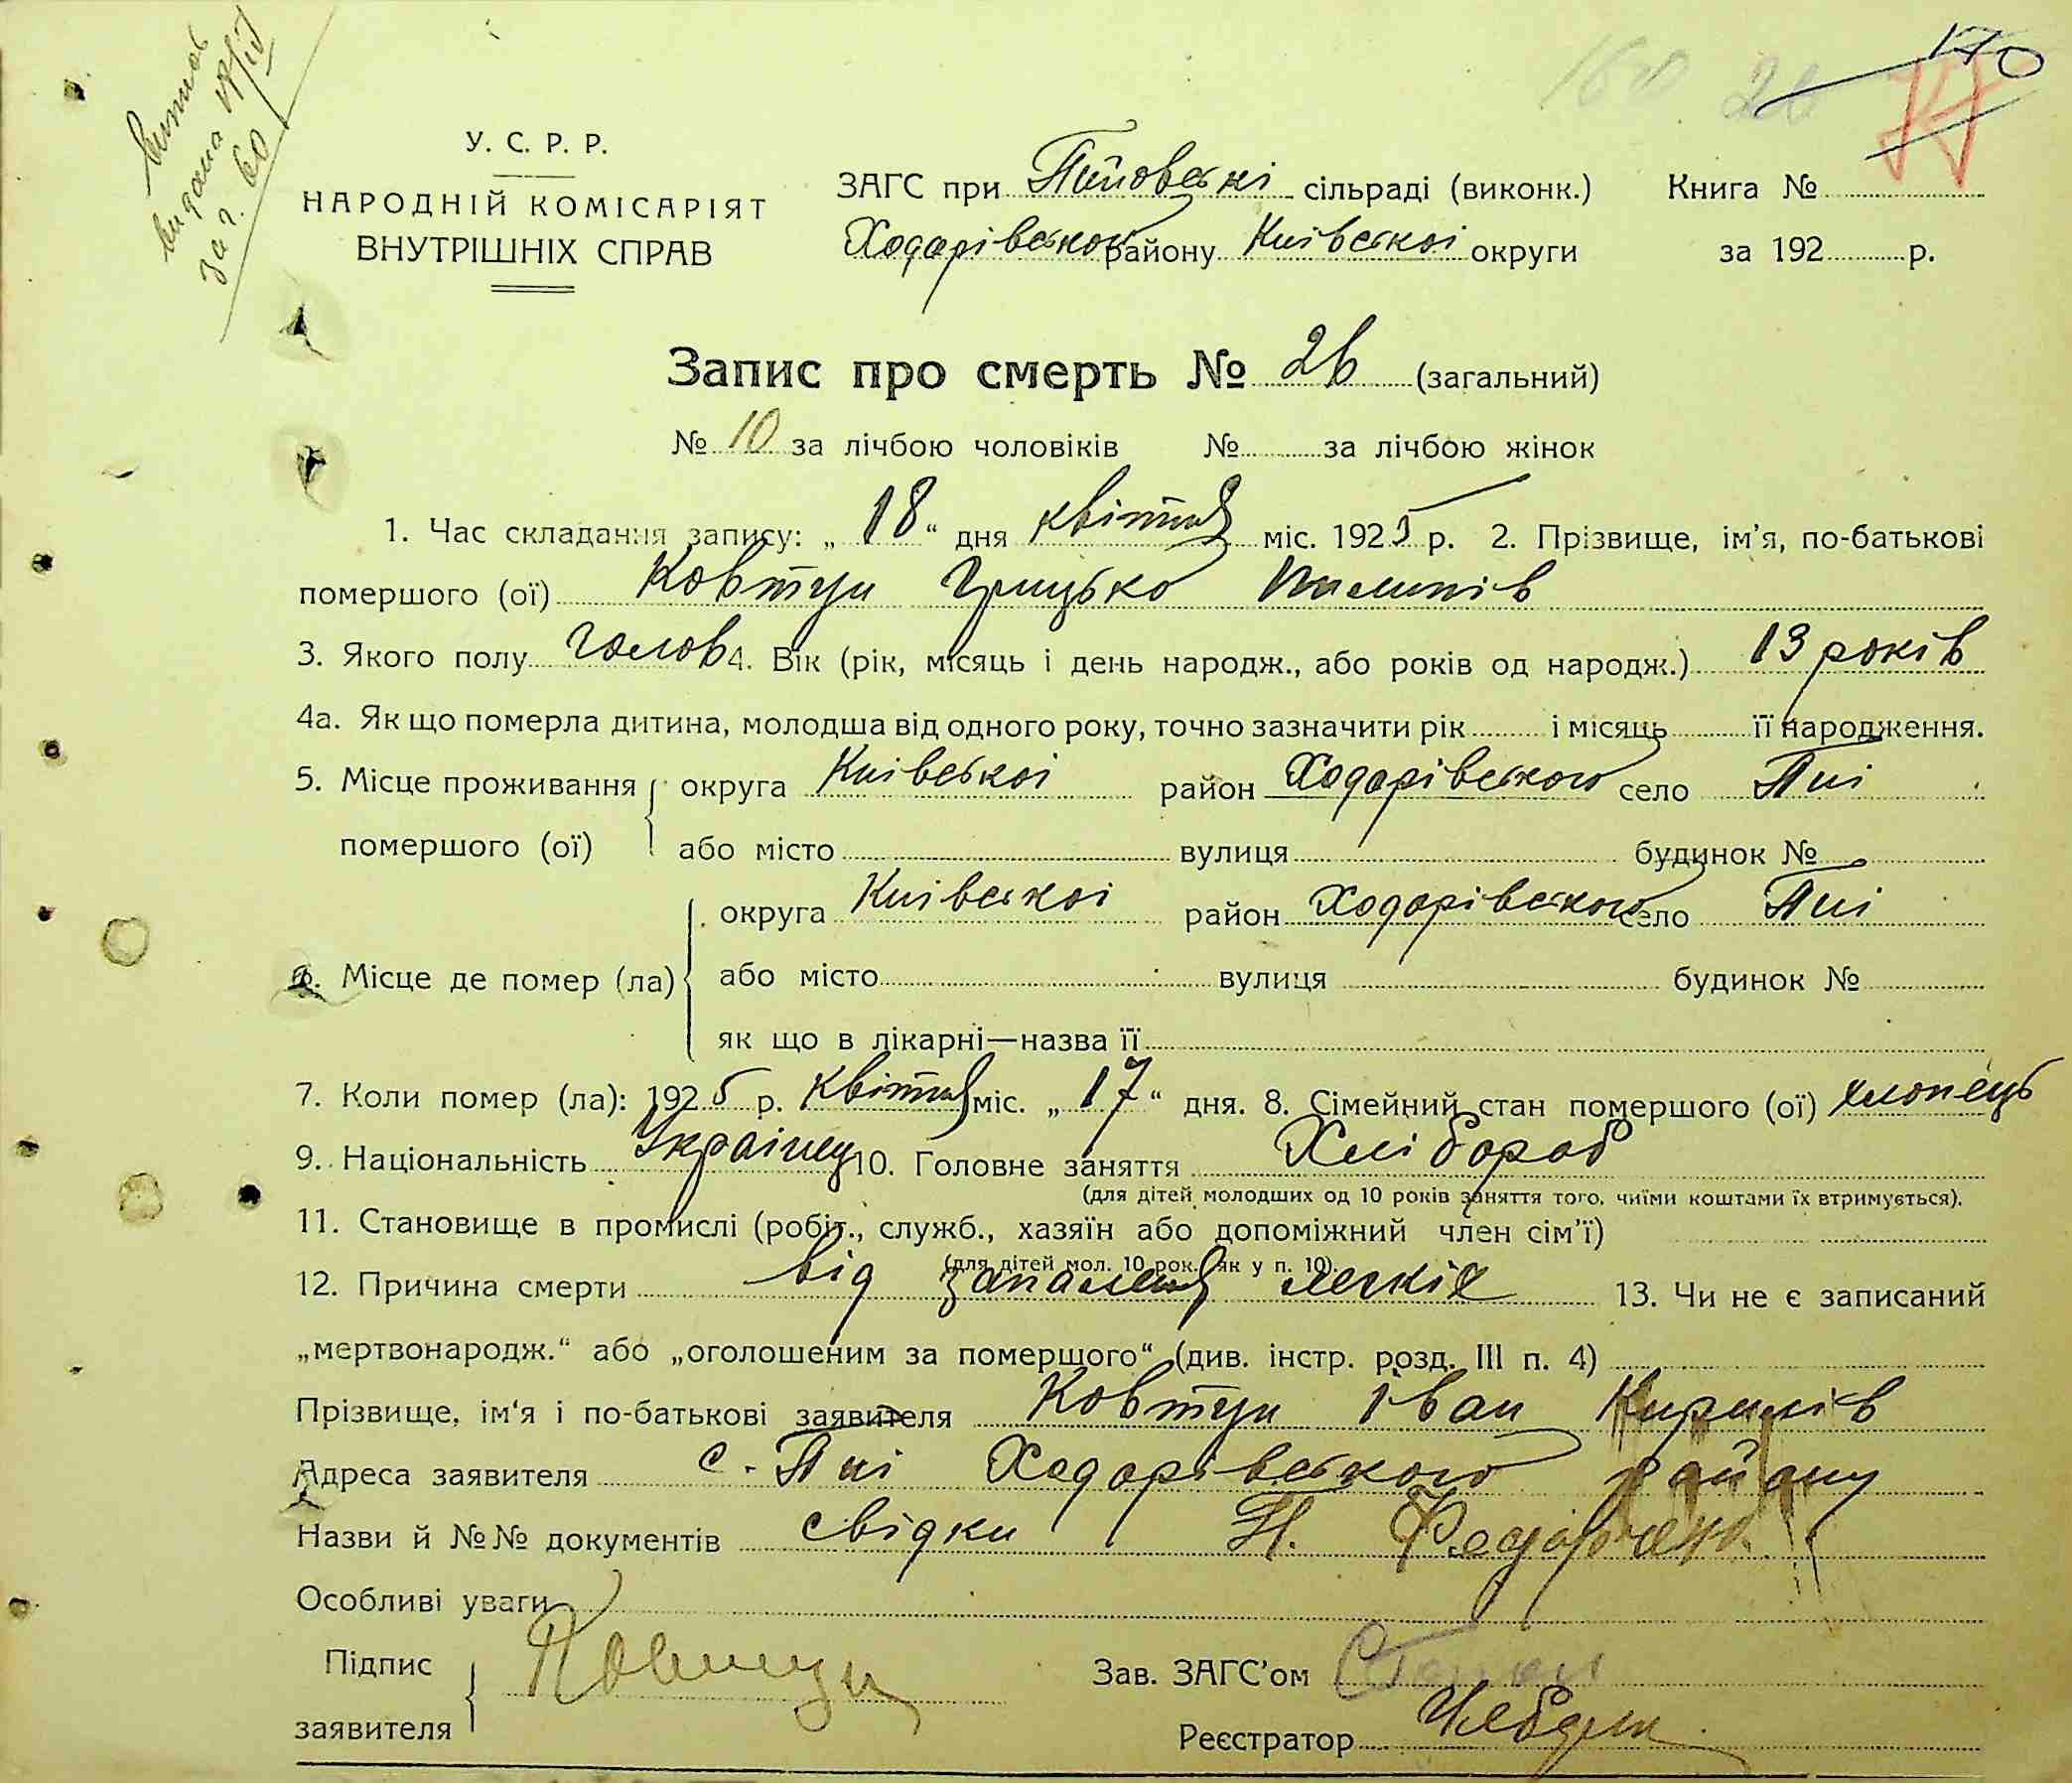 170
160 26
Витяг
видана
за г. 60
У. С. Р. Р.
НАРОДНІЙ КОМІСАРІЯТ
ВНУТРІШНІХ СПРАВ
ЗАГС при Пійовські сільраді (виконк.) Книга №
Ходарівського району Київської округи за 192 р.
Запис про смерть № 26 (загальний)
№ 10 за лічбою чоловіків № за лічбою жінок
1. Час складання запису: „ 18 “ дня квітня міс. 1925 р. 2. Прізвище, ім'я, по-батькові
помершого (ої) Ковтун Грицько Пилипів
3. Якого полу чолов 4. Вік (рік, місяць і день народж., або років од народж.) 13 років
4а. Як що померла дитина, молодша від одного року, точно зазначити рік і місяць її народження.
5. Місце проживання округа Київської район Ходарівського село Пії
помершого (ої) або місто вулиця будинок №
округа Київської район Ходарівського село Пії
6. Місце де помер (ла) або місто вулиця будинок №
як що в лікарні—назва її
7. Коли помер (ла): 1925 р. квітня міс. „ 17 “ дня. 8. Сімейний стан помершого (ої) хлопець
9. Національність Українец 10. Головне заняття Хлібороб
(для дітей молодших од 10 років заняття того, чиїми коштами їх втримується).
11. Становище в промислі (робіт., служб., хазяїн або допоміжний член сім'ї)
(для дітей мол. 10 рок. як у п. 10).
12. Причина смерти від запалення легких 13. Чи не є записаний
„мертвонародж.“ або „оголошеним за померщого“ (див. інстр. розд. III п. 4)
Прізвище, ім'я і по-батькові заявителя Ковтун Іван Кирилів
Адреса заявителя с. Пії Ходарівського району
Назви й №№ документів свідки П.
Особливі уваги
Підпис Ковтун Зав. ЗАГС'ом
заявителя Реєстратор